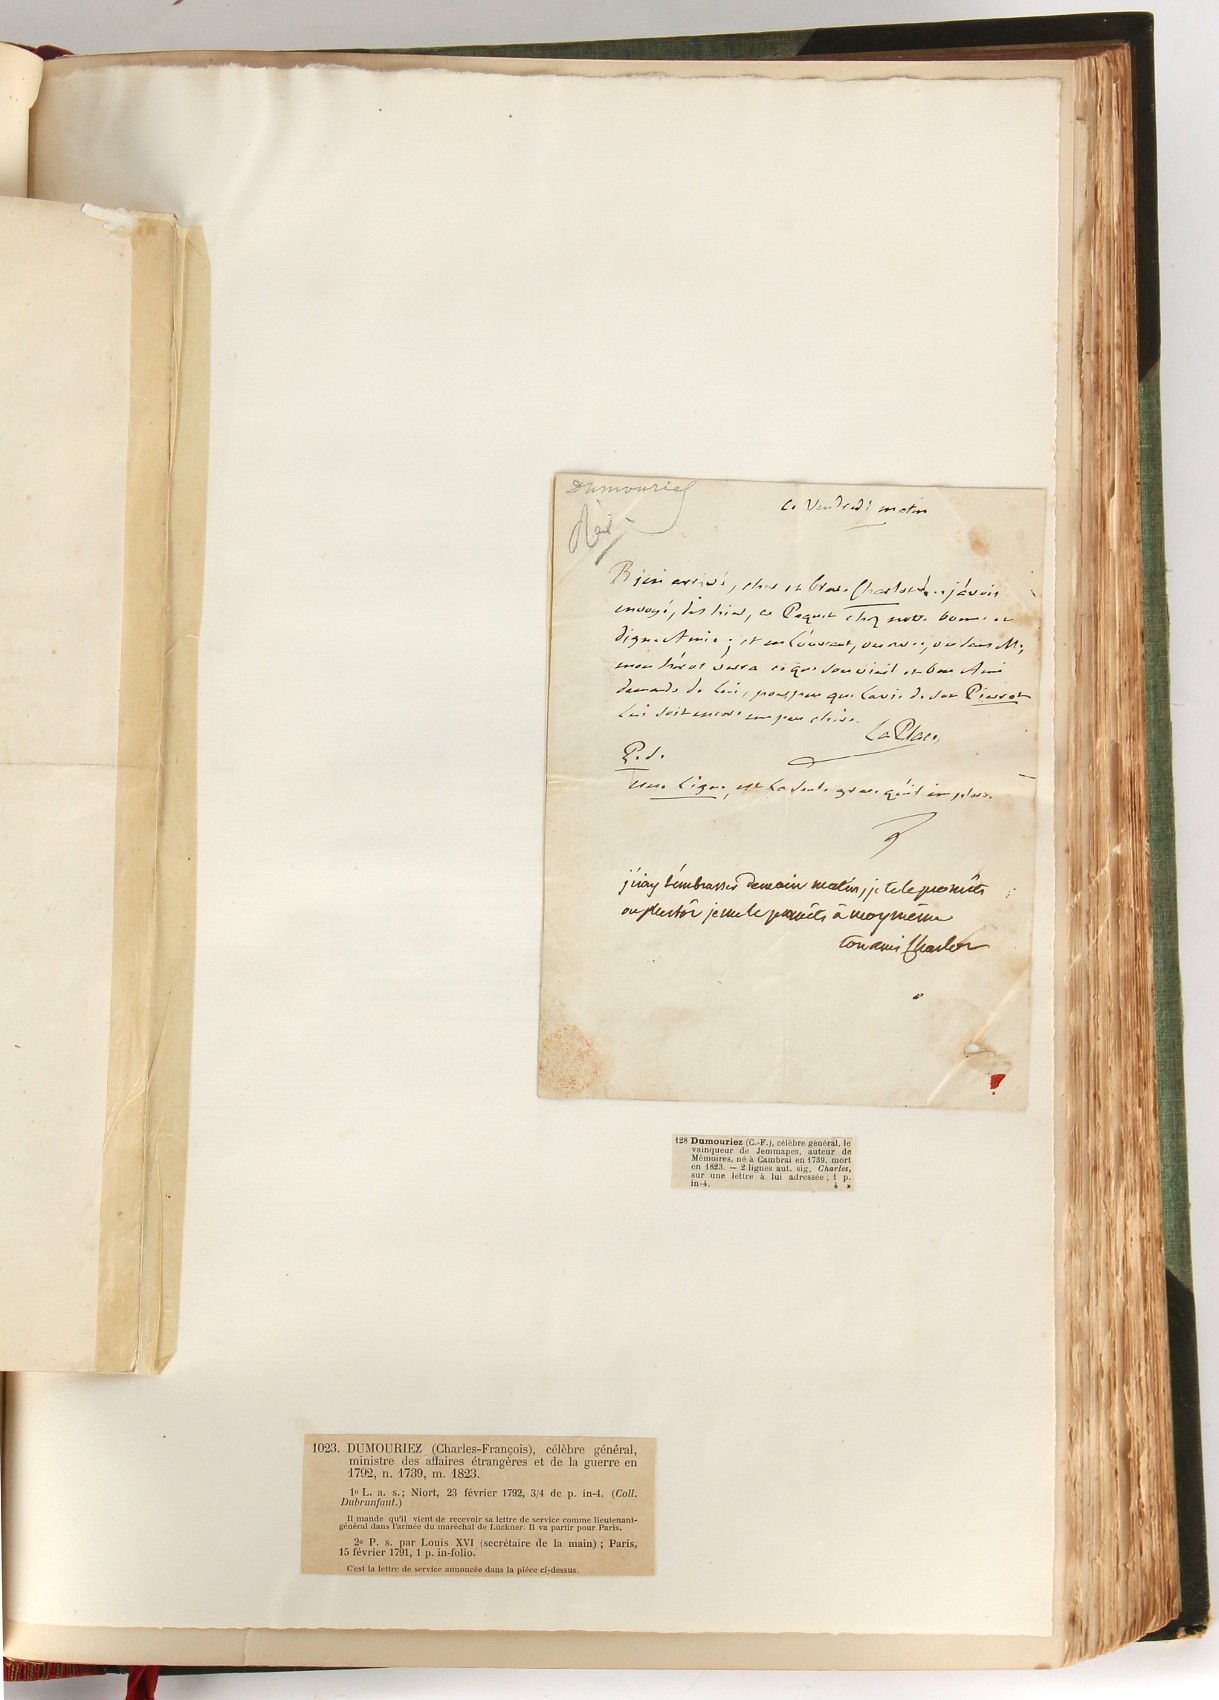 Dumouriez
ce Vendredi matin
Bien arrivé, cher et brave Charlot, j'avois
envoyé, dès hier, ce Paquet chez notre bonne et
digne Amie; et en l'ouvrant,
mon héros verra ce que son vieil et bon Ami
demande de lui, pour peu que la vie de son Pierrot
lui soit encore un peu chère.
La Place
P.S.
une ligne, est la seule grace qu'il implore.
j'iray t'embrasser demain matin, je te le promêts
ou plustôt je me le promêts à moy même
ton ami Charlot
128 Dumouriez (C.-F.), célèbre général, le
vainqueur de Jemmapes, auteur de
Mémoires, né à Cambrai en 1739, mort
en 1823. — 2 lignes aut. sig. Charles,
sur une lettre à lui adressée; 1 p.
in-4. 4 »
1023. DUMOURIEZ (Charles-François), célèbre général,
ministre des affaires étrangères et de la guerre en
1792, n. 1739, m. 1823.
1º L. a. s.; Niort, 23 février 1792, 3/4 de p. in-4. (Coll.
Dubrunfaut.)
Il mande qu'il vient de recevoir sa lettre de service comme lieutenant-
général dans l'armée du maréchal de Lückner. Il va partir pour Paris.
2º P. s. par Louis XVI (secrétaire de la main); Paris,
15 février 1791, 1 p. in-folio.
C'est la lettre de service annoncée dans la pièce ci-dessus.